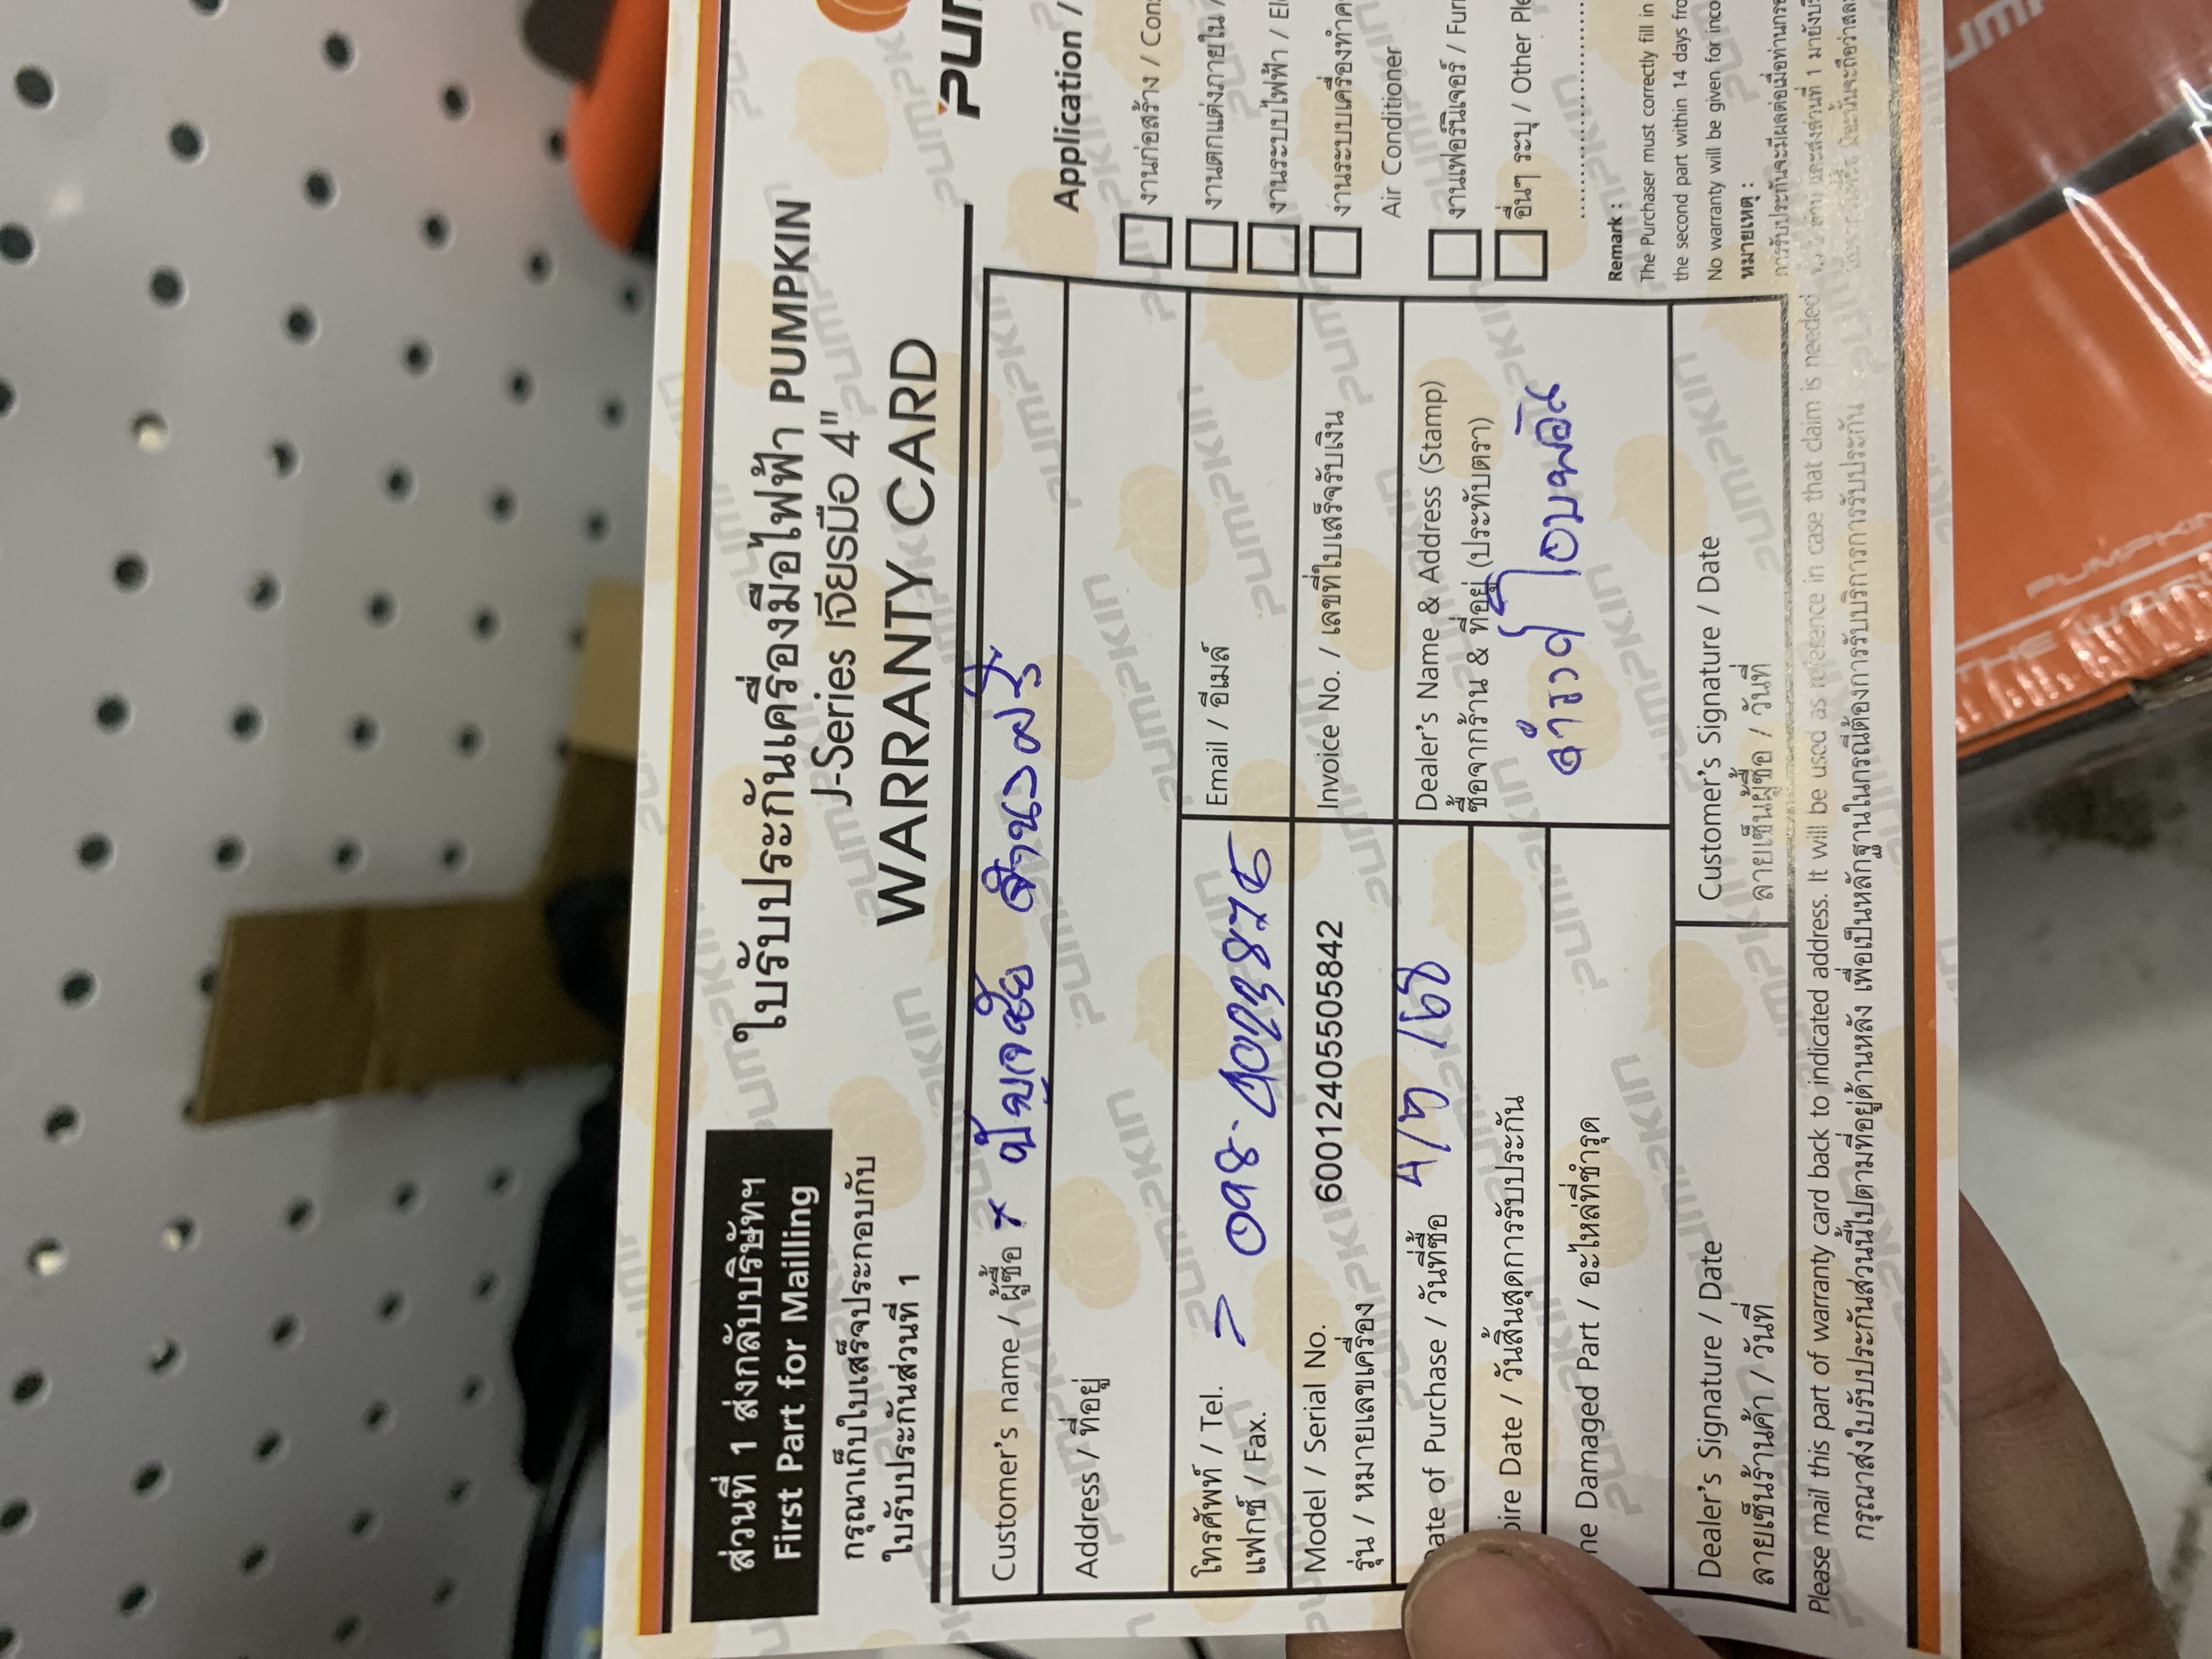 ส่วนที่ 1 ส่งกลับบริษัทฯ
First Part for Mailling
กรุณาเก็บใบเสร็จประกอบกับ
ใบรับประกันส่วนที่ 1
ใบรับประกันเครื่องมือไฟฟ้า PUMPKIN
J-Series เจียรมือ 4"
WARRANTY CARD
Customer's name / ผู้ซื้อ
Address / ที่อยู่
โทรศัพท์ / Tel.
แฟกซ์ / Fax.
Email / อีเมล์
Model / Serial No. 6001240550505842
รุ่น / หมายเลขเครื่อง
Invoice No. / เลขที่ใบเสร็จรับเงิน
Date of Purchase / วันที่ซื้อ 4/5/68
Dealer's Name & Address (Stamp)
ซื้อจากร้าน & ที่อยู่ (ประทับตรา)
pire Date / วันสิ้นสุดการรับประกัน
ne Damaged Part / อะไหล่ที่ชำรุด
Dealer's Signature / Date
ลายเซ็นร้านค้า / วันที่
Customer's Signature / Date
ลายเซ็นผู้ซื้อ / วันที่
Please mail this part of warranty card back to indicated address. It will be used as reference in case that claim is needed
กรุณาส่งใบรับประกันส่วนนี้ไปตามที่อยู่ด้านหลัง เพื่อเป็นหลักฐานในกรณีต้องการรับบริการการรับประกัน
Application /
งานก่อสร้าง / Cons
งานตกแต่งภายใน /
งานระบบไฟฟ้า / El
งานระบบเครื่องทำค
Air Conditioner
งานเฟอร์นิเจอร์ / Fur
อื่นๆ ระบุ / Other Ple
Remark :
The Purchaser must correctly fill in
the second part within 14 days fro
No warranty will be given for inco
หมายเหตุ :
PUMPKIN